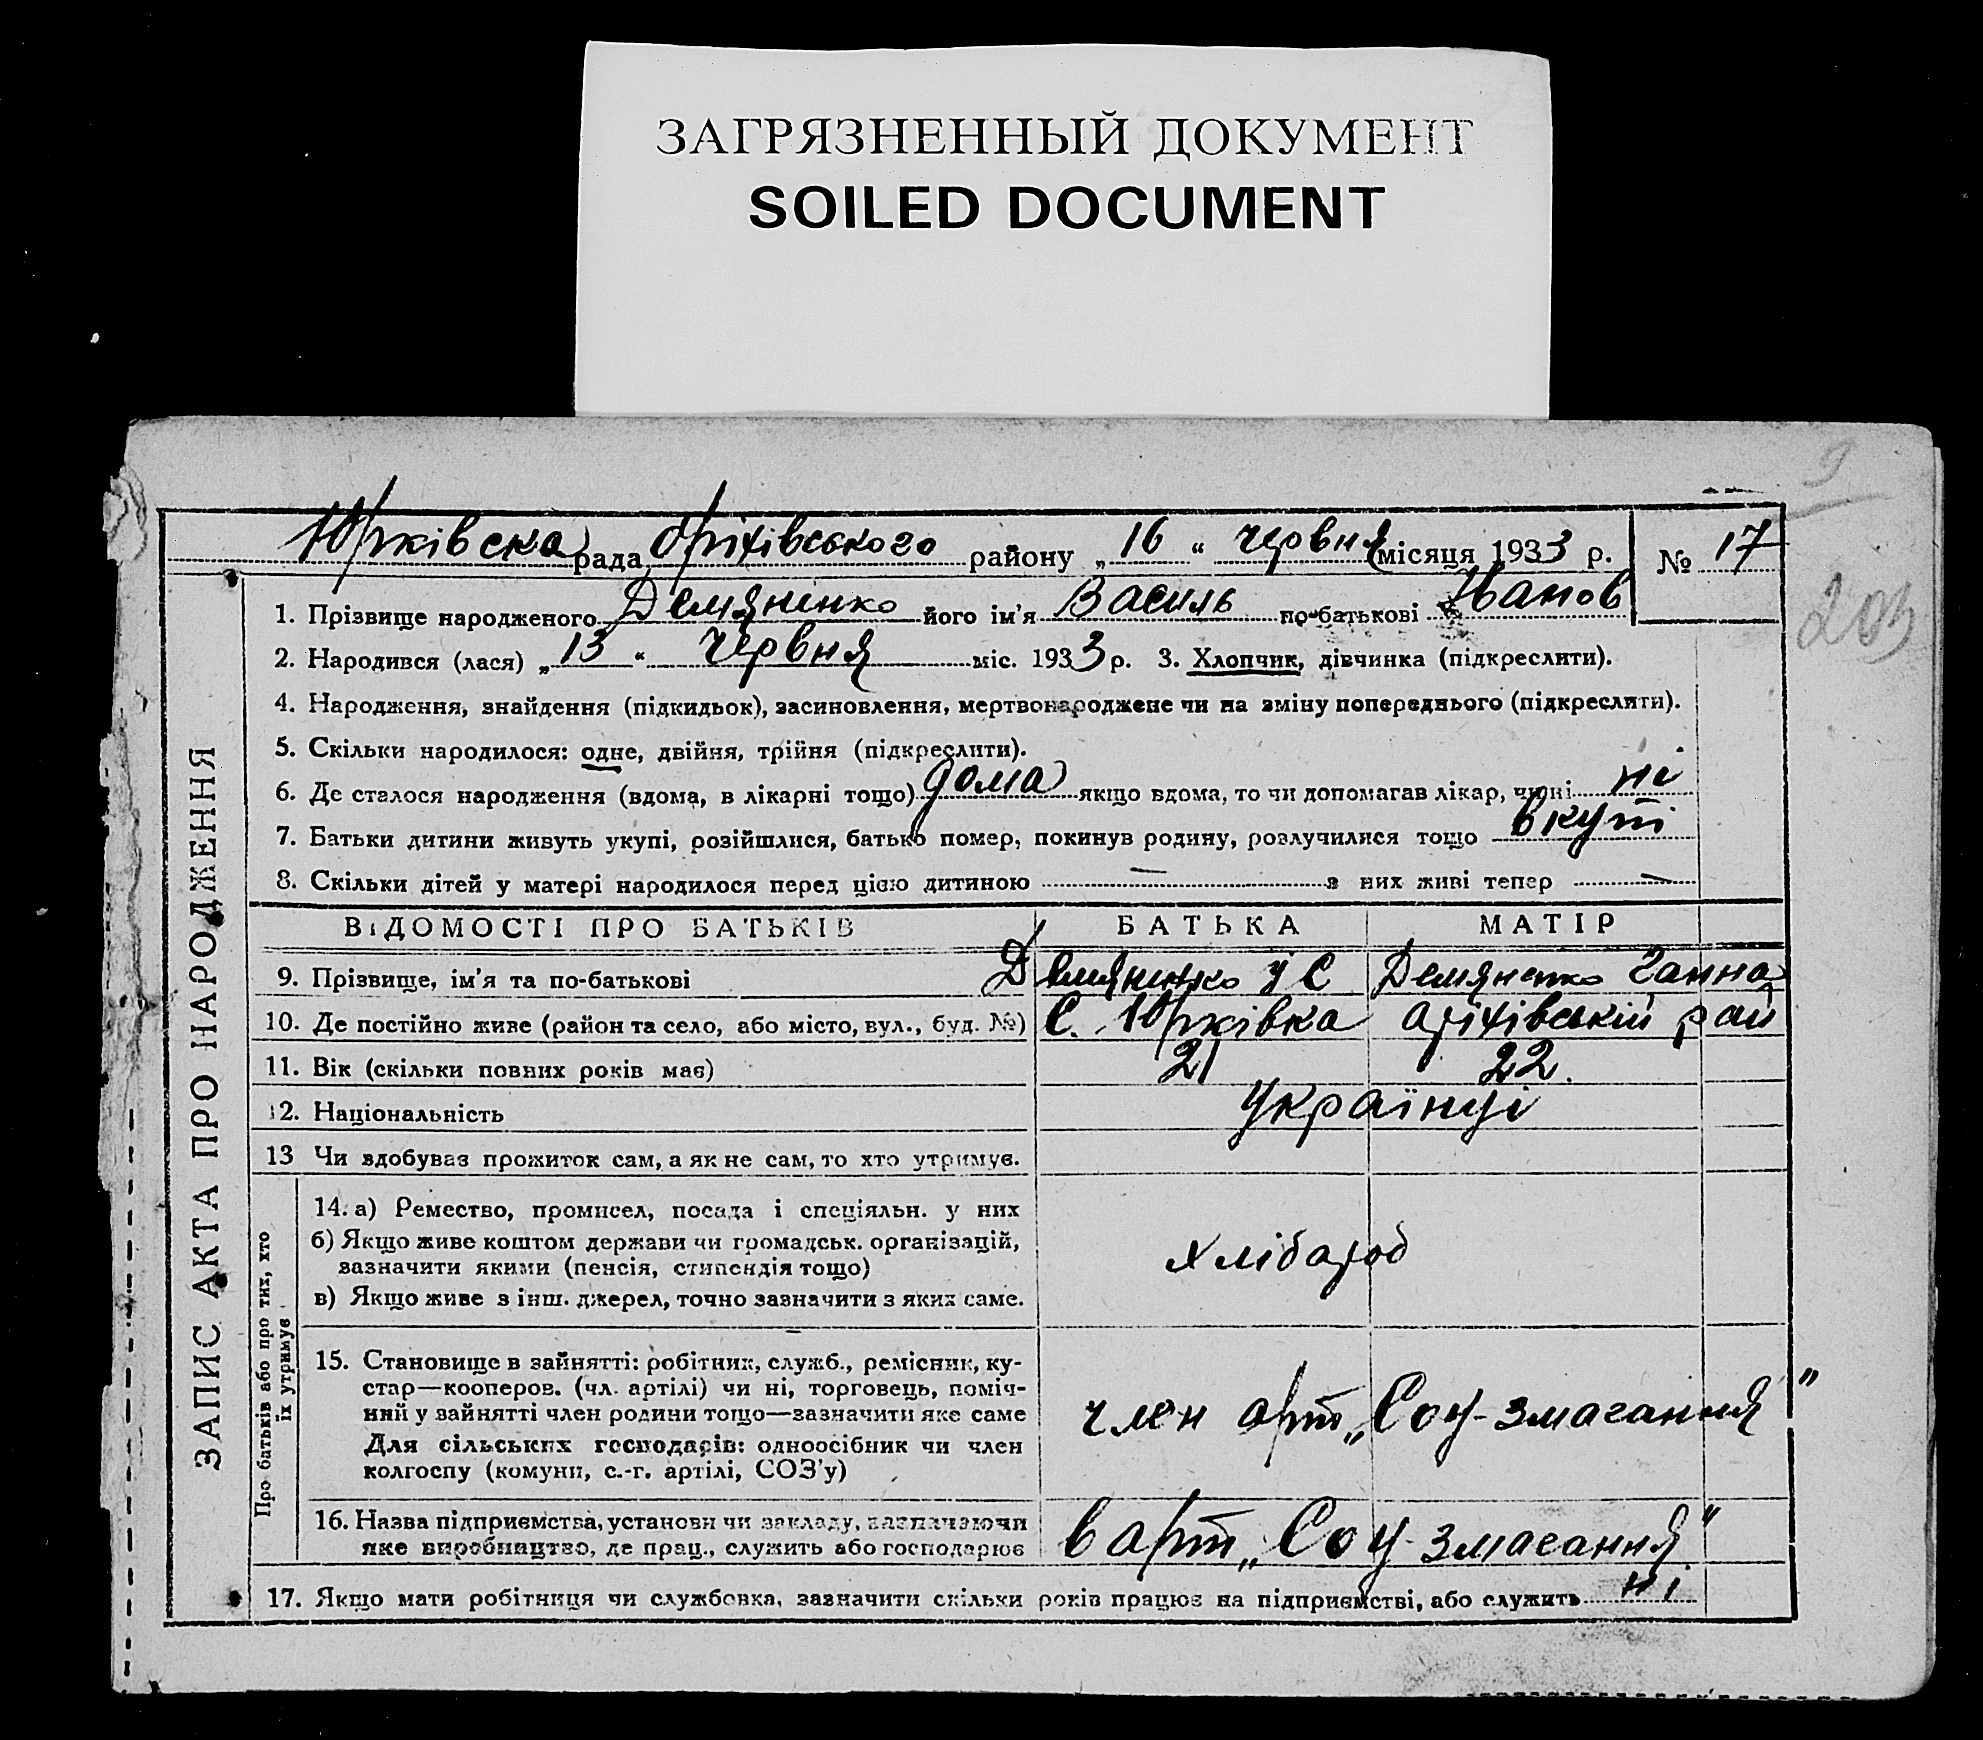 ЗАГРЯЗНЕННЫЙ ДОКУМЕНТ
SOILED DOCUMENT
9
Юрківска рада Оріхівського району „16“ червня місяця 1933 р. № 17
203
1. Прізвище народженого Демяненко його ім'я Василь по-батькові Іванов
2. Народився (лася) „13“ червня міс. 1933 р. 3. Хлопчик, дівчинка (підкреслити).
4. Народження, знайдення (підкидьок), засиновлення, мертвонароджене чи на зміну попереднього (підкреслити).
5. Скільки народилося: одне, двійня, трійня (підкреслити).
6. Де сталося народження (вдома, в лікарні тощо) дома якщо вдома, то чи допомагав лікар, чи ні ні
7. Батьки дитини живуть укупі, розійшлися, батько помер, покинув родину, розлучилися тощо вкупі
8. Скільки дітей у матері народилося перед цією дитиною — з них живі тепер —
ЗАПИС АКТА ПРО НАРОДЖЕННЯ
ВІДОМОСТІ ПРО БАТЬКІВ БАТЬКА МАТІР
9. Прізвище, ім'я та по-батькові Демяненко І С Демяненко Ганна
10. Де постійно живе (район та село, або місто, вул., буд. №) С. Юрківка Оріхівській рай
11. Вік (скільки повних років має) 21 22.
12. Національність Українці
13 Чи здобував прожиток сам, а як не сам, то хто утримує.
Про батьків або про тих, хто
їх утримує
14. а) Ремество, промисел, посада і спеціяльн. у них
б) Якщо живе коштом держави чи громадськ. організацій,
зазначити якими (пенсія, стипендія тощо)
хлібароб
в) Якщо живе з інш. джерел, точно зазначити з яких саме.
15. Становище в зайнятті: робітник, служб., ремісник, ку-
стар—кооперов. (чл. артілі) чи ні, торговець, поміч-
ний у зайнятті член родини тощо—зазначити яке саме
член арт „Соц-змагання"
Для сільських господарів: одноосібник чи член
колгоспу (комуни, с.-г. артілі, СОЗ'у)
16. Назва підприємства, установи чи закладу, зазначаючи
яке виробництво, де прац., служить або господарює
в арт „Соц-змагання"
17. Якщо мати робітниця чи службовка, зазначити скільки років працює на підприємстві, або служить ні